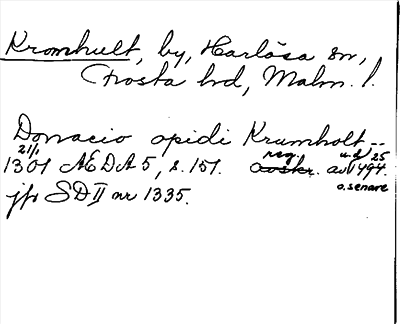 Kromhult, by, Harlösa sn,
Frosta hd, Malm. l.
Donacio opidi Krumholt --
21/1 reg. u.d 25
1301 AEDA 5, s. 151. avskr. av 1494.
o. senare
jfr SD II nr 1335.